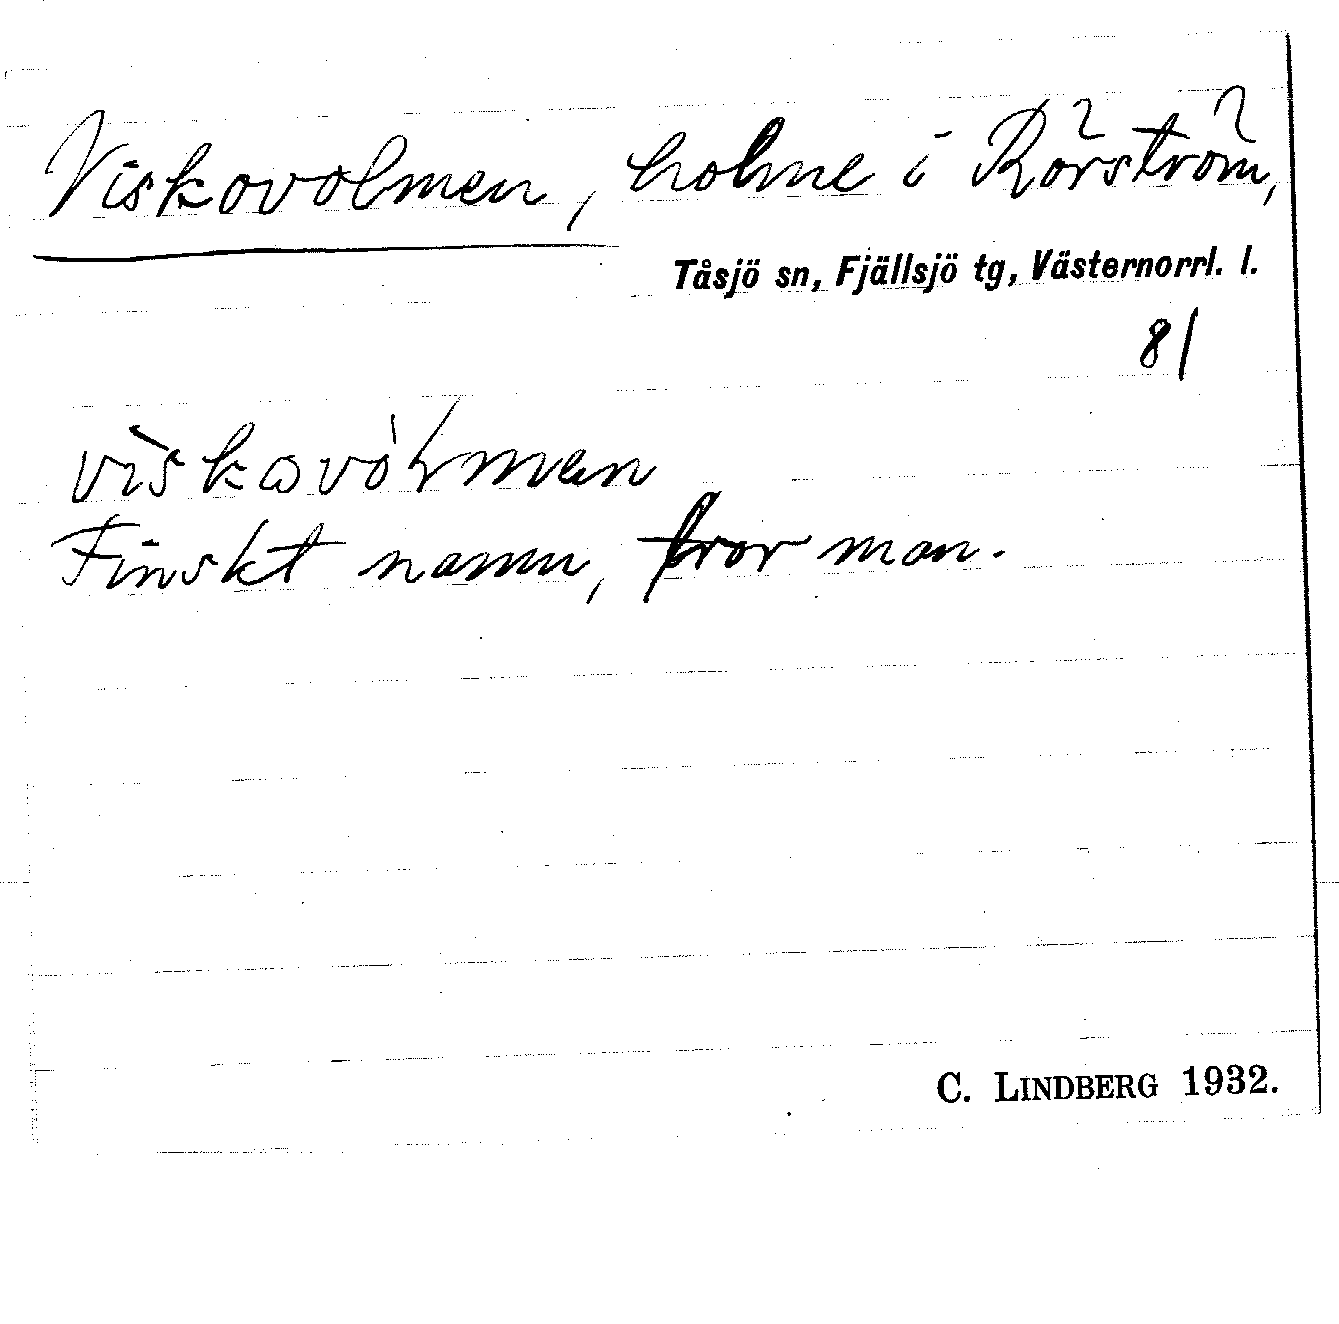 Viskovolmen, holme i Rörström,
Tåsjö sn, Fjällsjö tg, Västernorrl. l.
81
Finskt namn, tror man.
C. LINDBERG 1932.